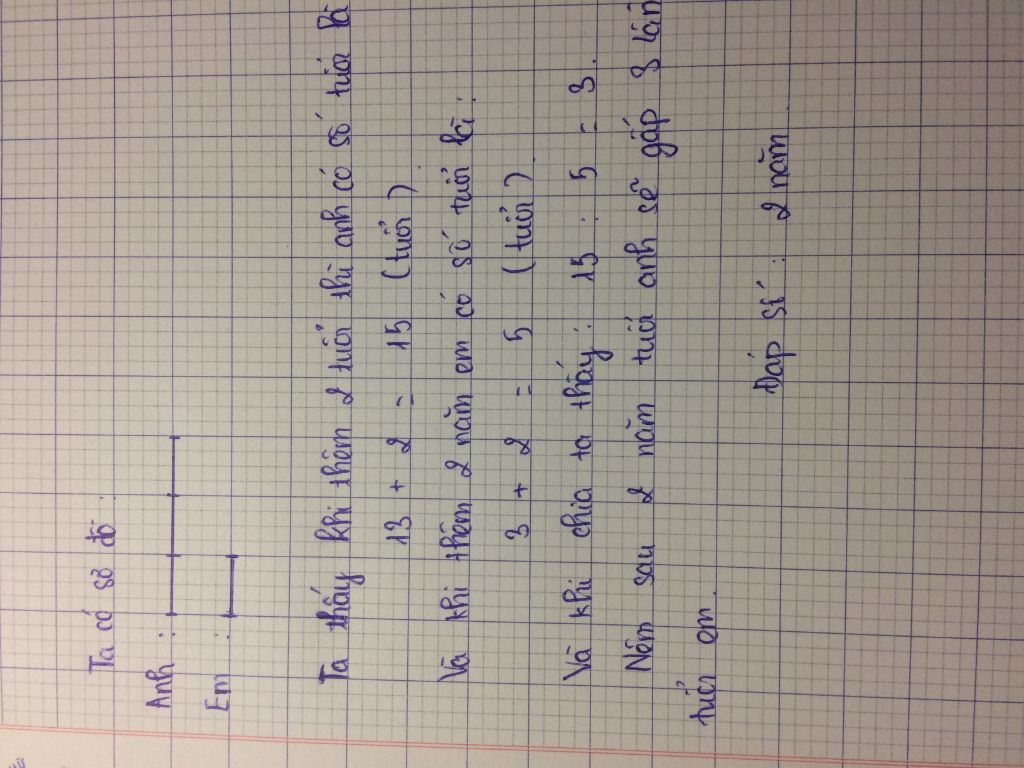 Ta có sơ đồ :
Anh :
Em :
Ta thấy khi thêm 2 tuổi thì anh có số tuổi là
13 + 2 = 15 (tuổi)
Và khi thêm 2 năm em có số tuổi là :
3 + 2 = 5 (tuổi)
Và khi chia ta thấy : 15 : 5 = 3.
Năm sau 2 năm tuổi anh sẽ gấp 3 lần
tuổi em.
Đáp số : 2 năm